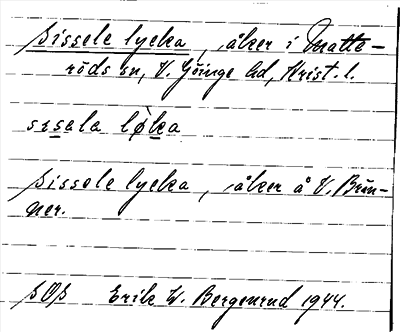 Sissele lycka, åker i Matte-
röds sn, V. Göinge hd, Krist. l.
sisela lø̀ka
Sissele lycka, åker å V. Brön-
ner.
SOS Erik W. Bergenrud 1944.